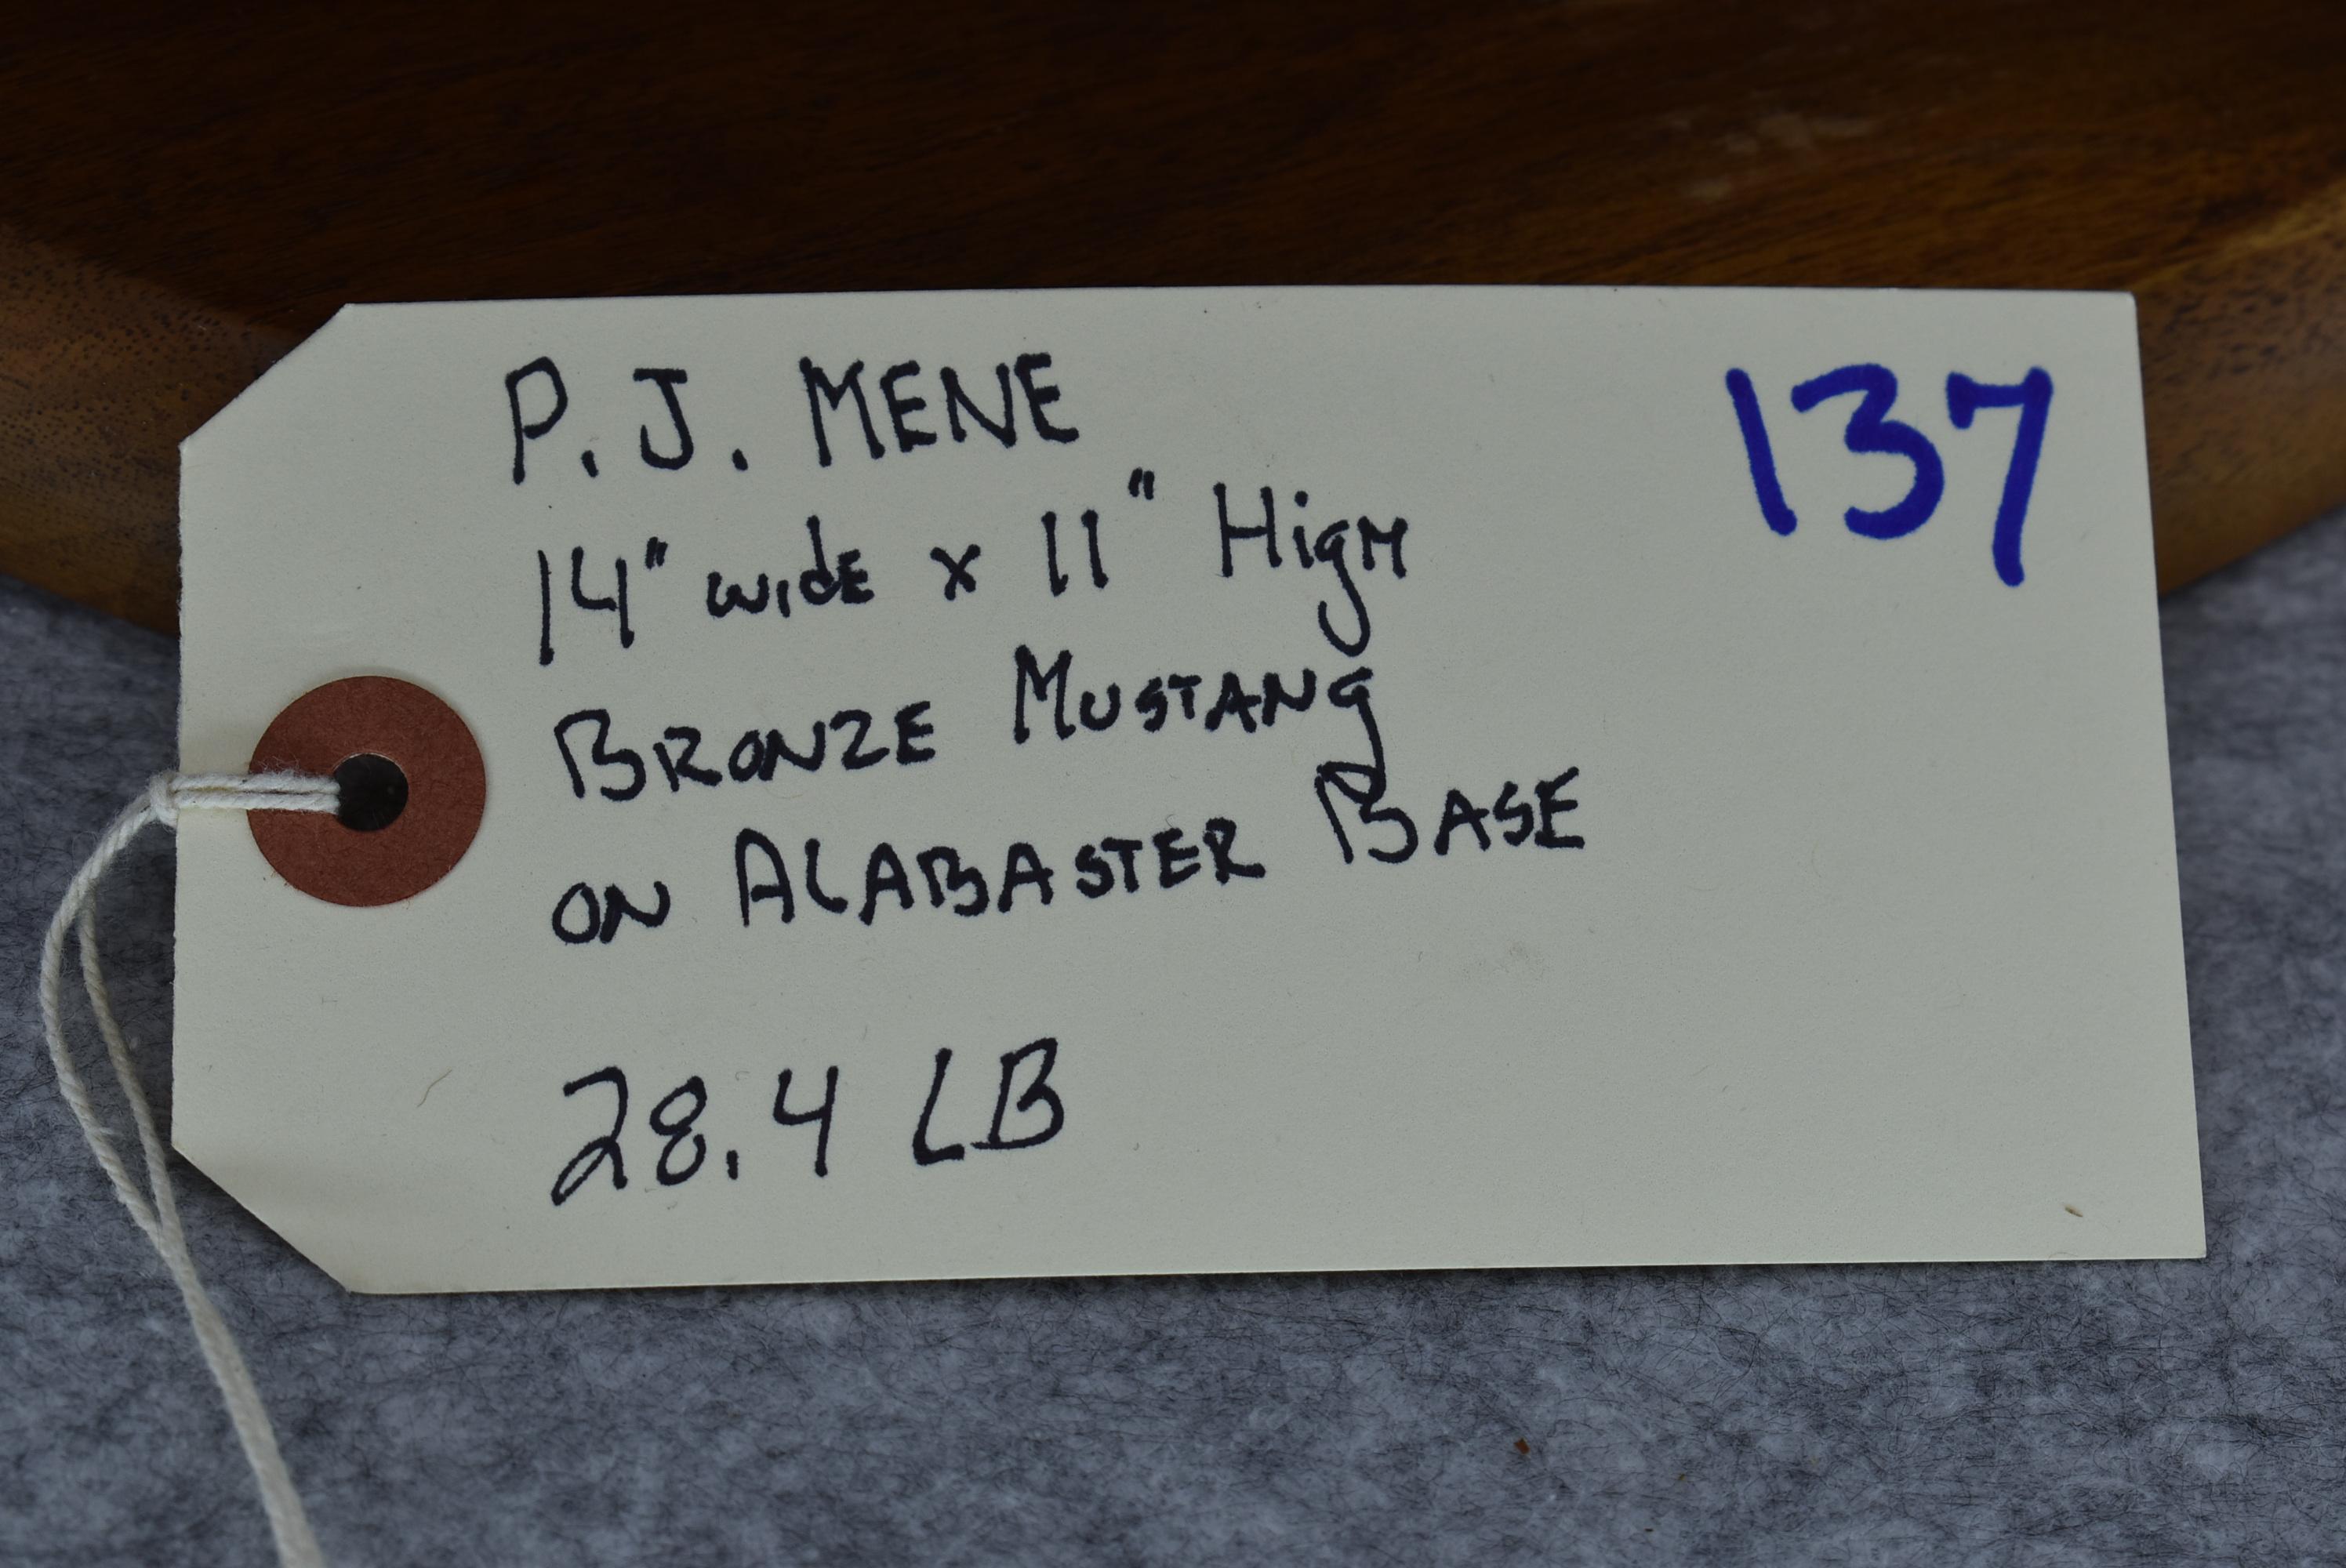 P. J. MENE
137
14" WIDE x 11" HIGH
BRONZE MUSTANG
ON ALABASTER BASE
28.4 LB